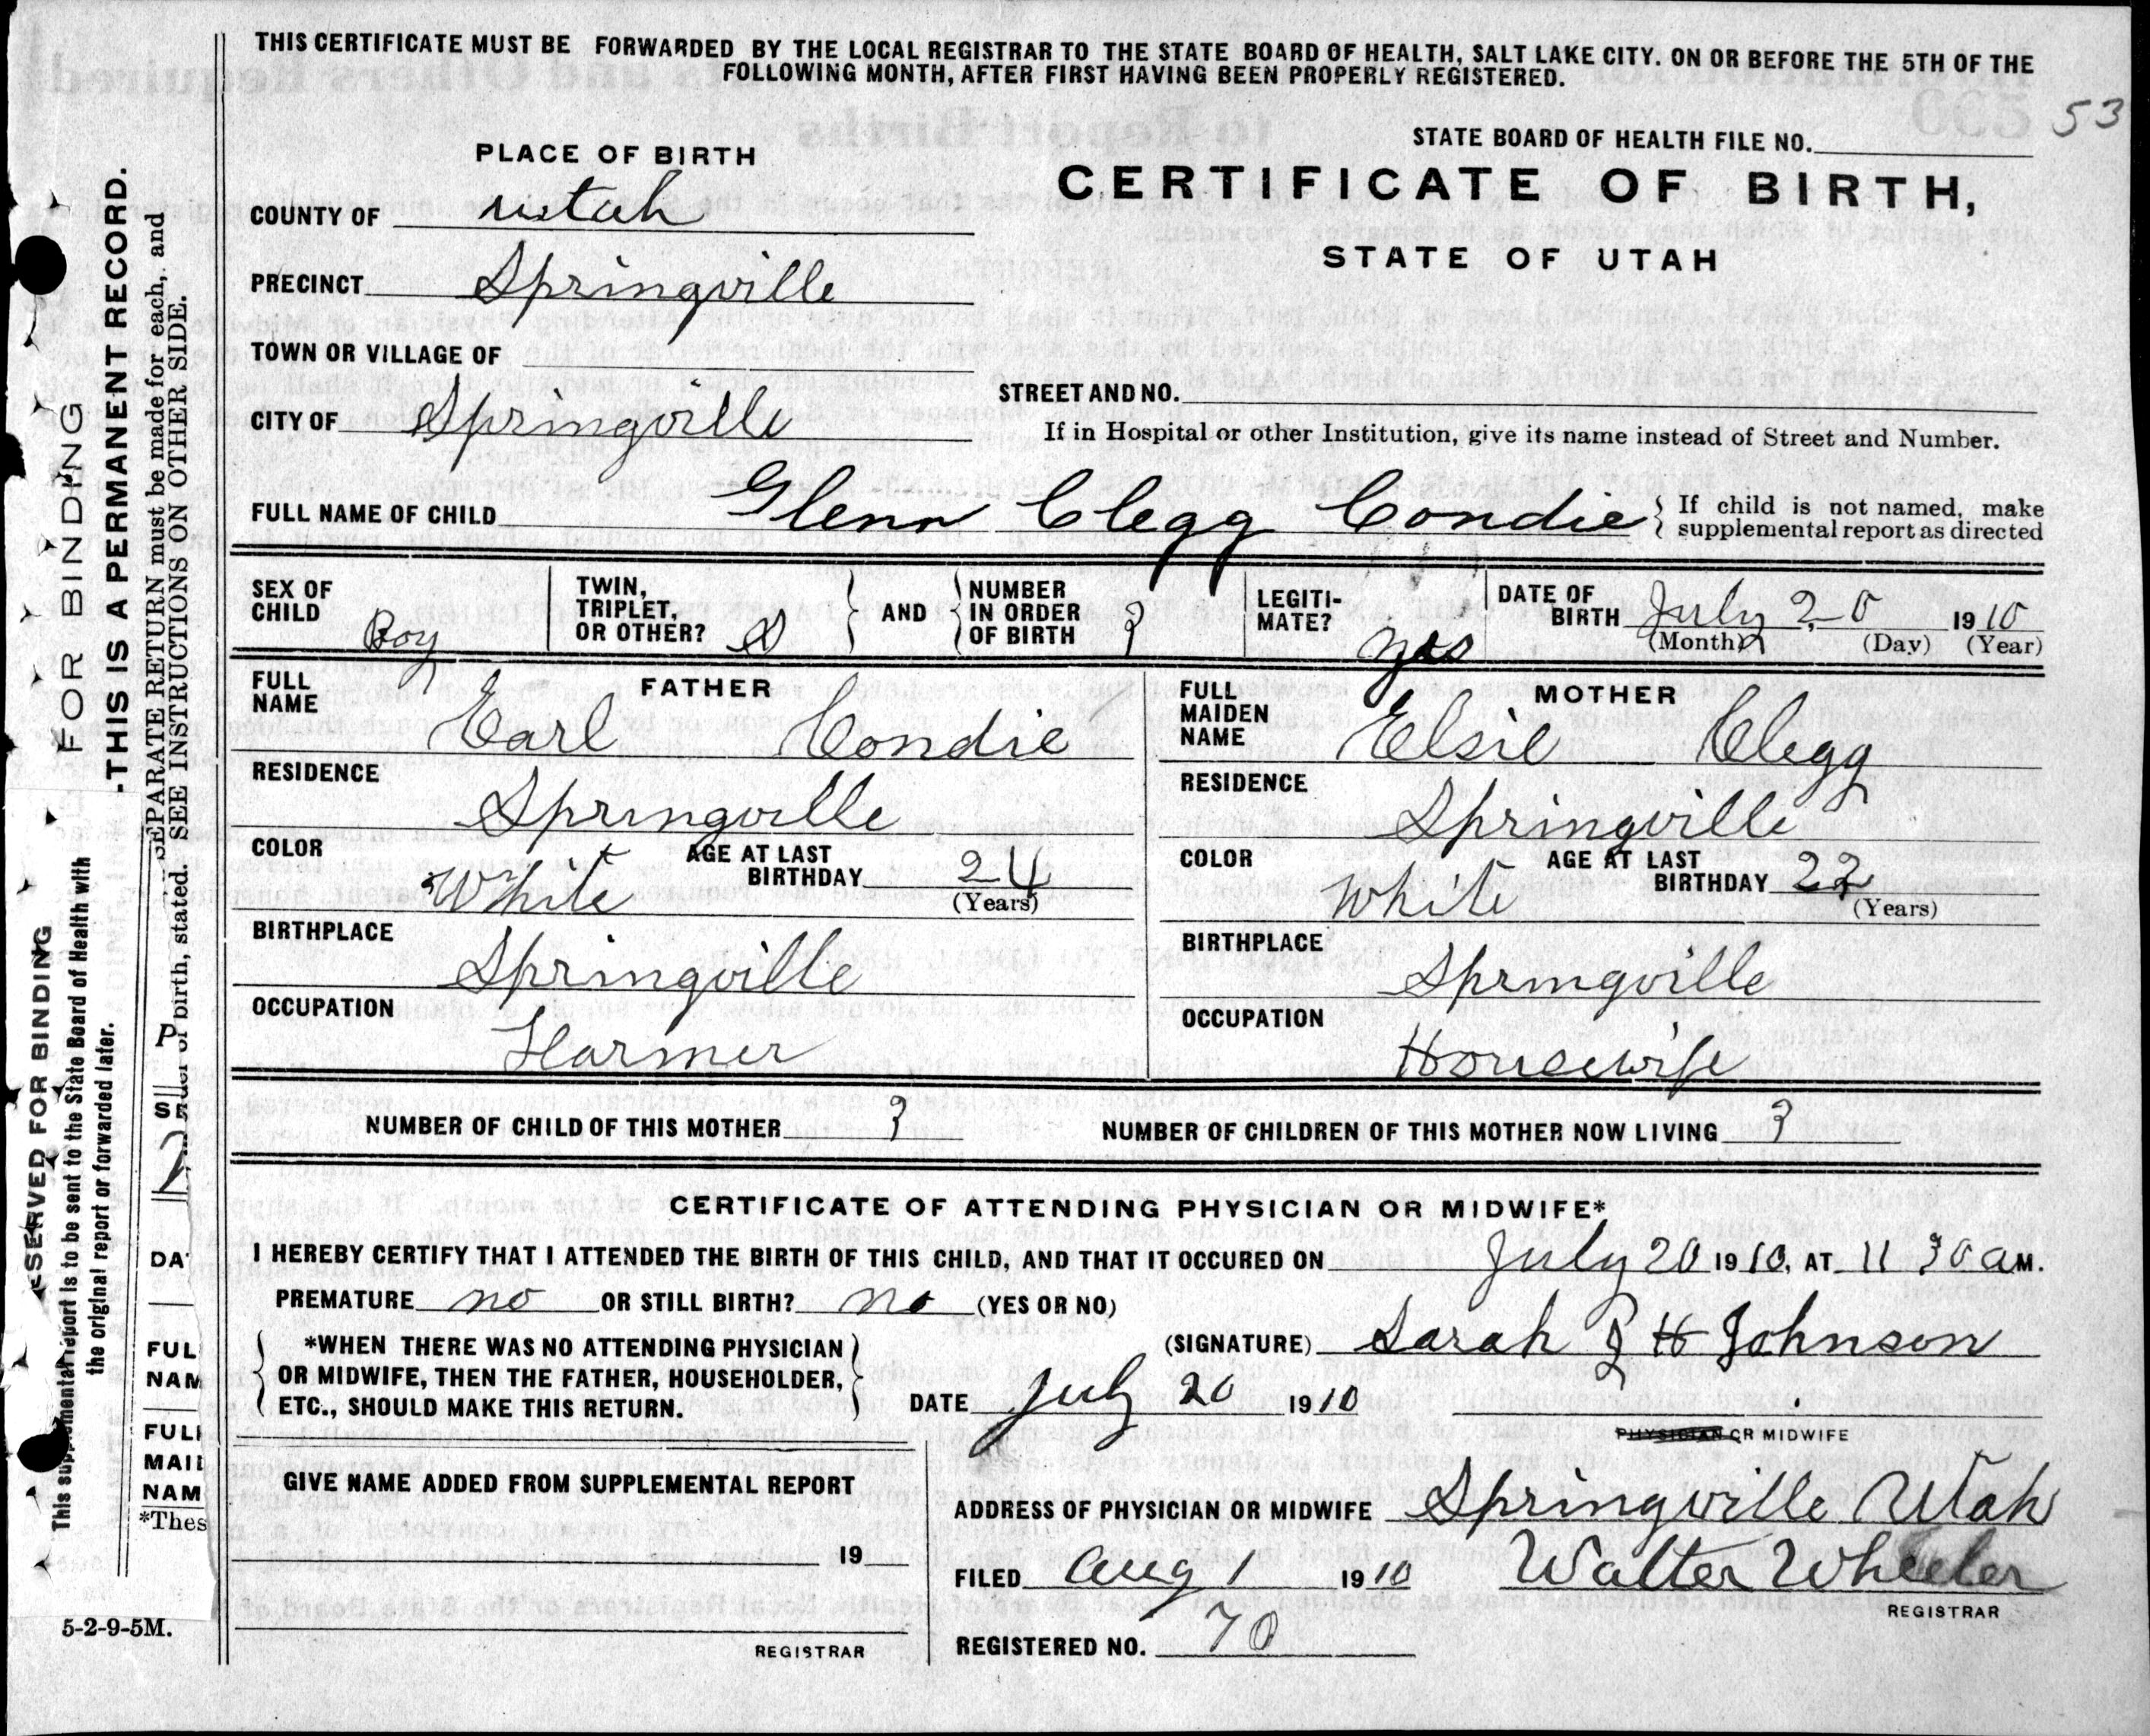 THIS CERTIFICATE MUST BE FORWARDED BY THE LOCAL REGISTRAR TO THE STATE BOARD OF HEALTH, SALT LAKE CITY. ON OR BEFORE THE 5TH OF THE
FOLLOWING MONTH, AFTER FIRST HAVING BEEN PROPERLY REGISTERED.
53
STATE BOARD OF HEALTH FILE NO.
PLACE OF BIRTH
CERTIFICATE OF BIRTH,
STATE OF UTAH
COUNTY OF Utah
PRECINCT Springville
TOWN OR VILLAGE OF
CITY OF Springville
STREET AND NO.
If in Hospital or other Institution, give its name instead of Street and Number.
FULL NAME OF CHILD Glenn Clegg Condie
If child is not named, make
supplemental report as directed
SEX OF CHILD Boy
TWIN, TRIPLET, OR OTHER?
AND
NUMBER IN ORDER OF BIRTH 3
LEGITI-MATE? yes
DATE OF BIRTH July 20 1910
(Month) (Day) (Year)
FATHER
FULL NAME Earl Condie
RESIDENCE Springville
COLOR White
AGE AT LAST BIRTHDAY 24
(Years)
BIRTHPLACE Springville
OCCUPATION Farmer
MOTHER
FULL MAIDEN NAME Elsie Clegg
RESIDENCE Springville
COLOR White
AGE AT LAST BIRTHDAY
(Years)
BIRTHPLACE Springville
OCCUPATION Housewife
NUMBER OF CHILD OF THIS MOTHER 3
NUMBER OF CHILDREN OF THIS MOTHER NOW LIVING 3
CERTIFICATE OF ATTENDING PHYSICIAN OR MIDWIFE*
I HEREBY CERTIFY THAT I ATTENDED THE BIRTH OF THIS CHILD, AND THAT IT OCCURED ON July 20 1910, AT 11 30 a M.
PREMATURE no OR STILL BIRTH? no (YES OR NO)
*WHEN THERE WAS NO ATTENDING PHYSICIAN
OR MIDWIFE, THEN THE FATHER, HOUSEHOLDER,
ETC., SHOULD MAKE THIS RETURN.
(SIGNATURE) Sarah H Johnson
DATE July 20 1910
PHYSICIAN OR MIDWIFE
GIVE NAME ADDED FROM SUPPLEMENTAL REPORT
19
REGISTRAR
ADDRESS OF PHYSICIAN OR MIDWIFE Springville Utah
FILED Aug 1 1910 Walter Wheeler
REGISTRAR
REGISTERED NO. 70
FOR BINDING
-THIS IS A PERMANENT RECORD.
SEPARATE RETURN must be made for each, and
birth, stated. SEE INSTRUCTIONS ON OTHER SIDE.
SERVED FOR BINDING
This supplemental report is to be sent to the State Board of Health with
the original report or forwarded later.
P
S
DA
FUL
NAM
FULL
MAID
NAM
*Thes
5-2-9-5M.